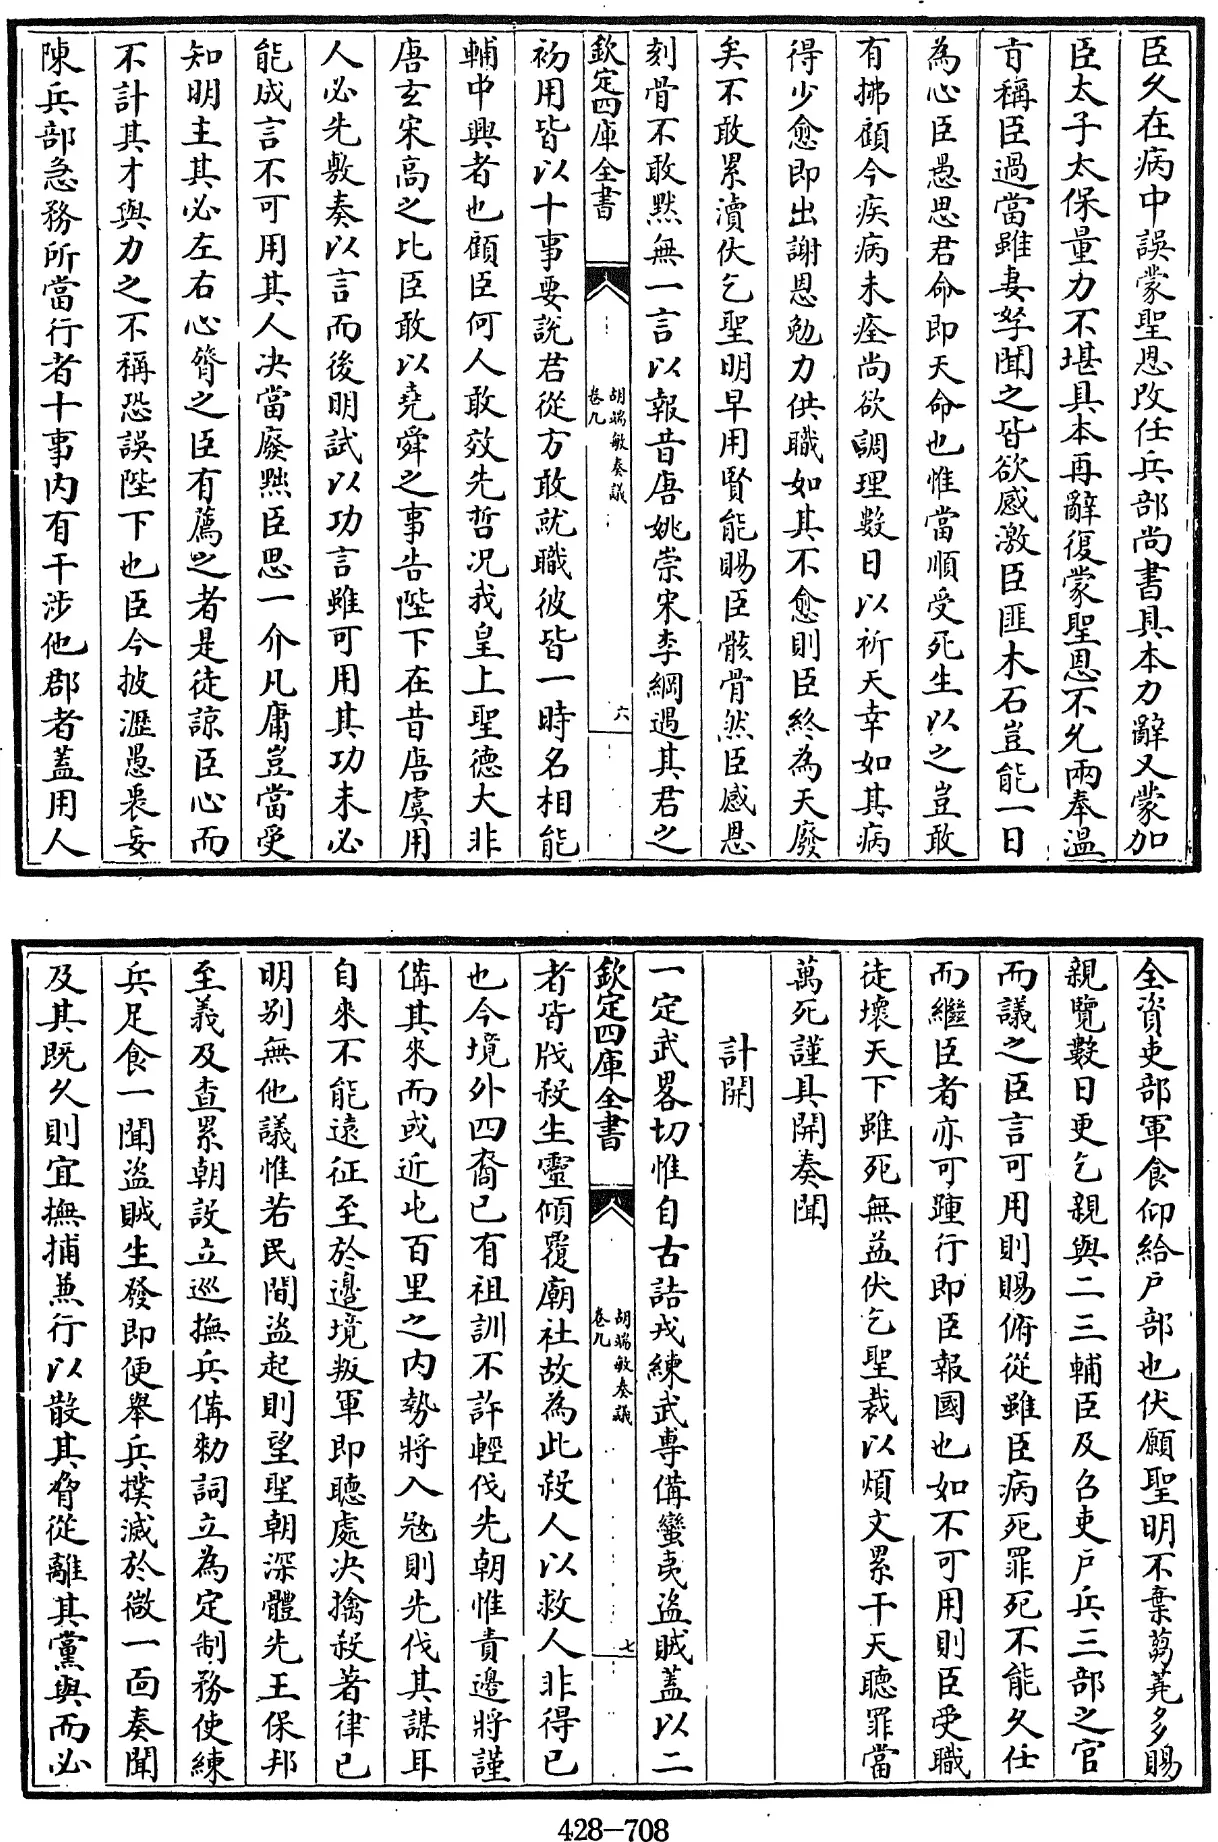 臣久在病中誤蒙聖恩改任兵部尚書具本力辭又蒙加
臣太子太保量力不堪具本再辭復蒙聖恩不允兩奉溫
㫖稱臣過當雖妻孥聞之皆欲感激臣匪木石豈能一日
為心臣愚思君命即天命也惟當順受死生以之豈敢
有拂顧今疾病未痊尚欲調理數日以祈天幸如其病
得少愈即出謝恩勉力供職如其不愈則臣終為天廢
矣不敢累瀆伏乞聖明早用賢能賜臣骸骨然臣感恩
刻骨不敢默無一言以報昔唐姚崇宋李綱遇其君之
欽定四庫全書
胡端敏奏議
卷九
六
初用皆以十事要說君從方敢就職彼皆一時名相能
輔中興者也顧臣何人敢效先哲况我皇上聖德大非
唐玄宋高之比臣敢以堯舜之事告陛下在昔唐虞用
人必先敷奏以言而後明試以功言雖可用其功未必
能成言不可用其人决當廢黜臣思一介凡庸豈當受
知明主其必左右心膂之臣有薦之者是徒諒臣心而
不計其才與力之不稱恐誤陛下也臣今披瀝愚衷妄
陳兵部急務所當行者十事内有干涉他郡者蓋用人
全資吏部軍食仰給戶部也伏願聖明不棄蒭蕘多賜
親覽數日更乞親與二三輔臣及召吏戶兵三部之官
而議之臣言可用則賜俯從雖臣病死罪死不能久任
而繼臣者亦可踵行即臣報國也如不可用則臣受職
徒壞天下雖死無益伏乞聖裁以煩文累干天聽罪當
萬死謹具開奏聞
計開
一定武畧切惟自古詰戎練武專備蠻夷盜賊蓋以二
欽定四庫全書
胡端敏奏議
卷九
七
者皆戕殺生靈傾覆廟社故為此殺人以救人非得已
也今境外四裔已有祖訓不許輕伐先朝惟責邊將謹
備其來而或近屯百里之内勢將入寇則先伐其謀耳
自來不能遠征至於邊境叛軍即聽處决擒殺著律已
明别無他議惟若民間盜起則望聖朝深體先王保邦
至義及查累朝設立巡撫兵備勅詞立為定制務使練
兵足食一聞盜賊生發即便舉兵撲滅於微一面奏聞
及其既久則宜撫捕兼行以散其脅從離其黨與而必
428-708